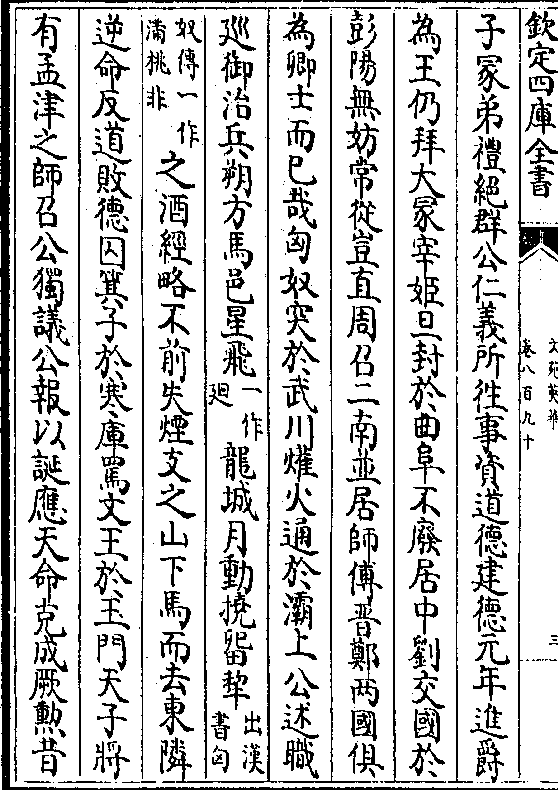 欽定四庫全書
文苑英華
卷八百九十
三
子冢弟禮絕群公仁義所徃事資道德建德元年進爵
為王仍拜大冢宰姬旦封於曲阜不廢居中劉交國於
彭陽無妨常從豈直周召二南並居師傅晉鄭兩國俱
為卿士而已哉匈奴突於武川爟火通於灞上公述職
廵御治兵朔方馬邑星飛一作廻龍城月動撓㽞犂出漢書匈
奴傳一作滿桃非之酒經略不前失煙支之山下馬而去東隣
逆命反道敗德囚箕子於寒庫罵文王於玉門天子將
有孟津之師召公獨議公報以誕應天命克成厥勲昔